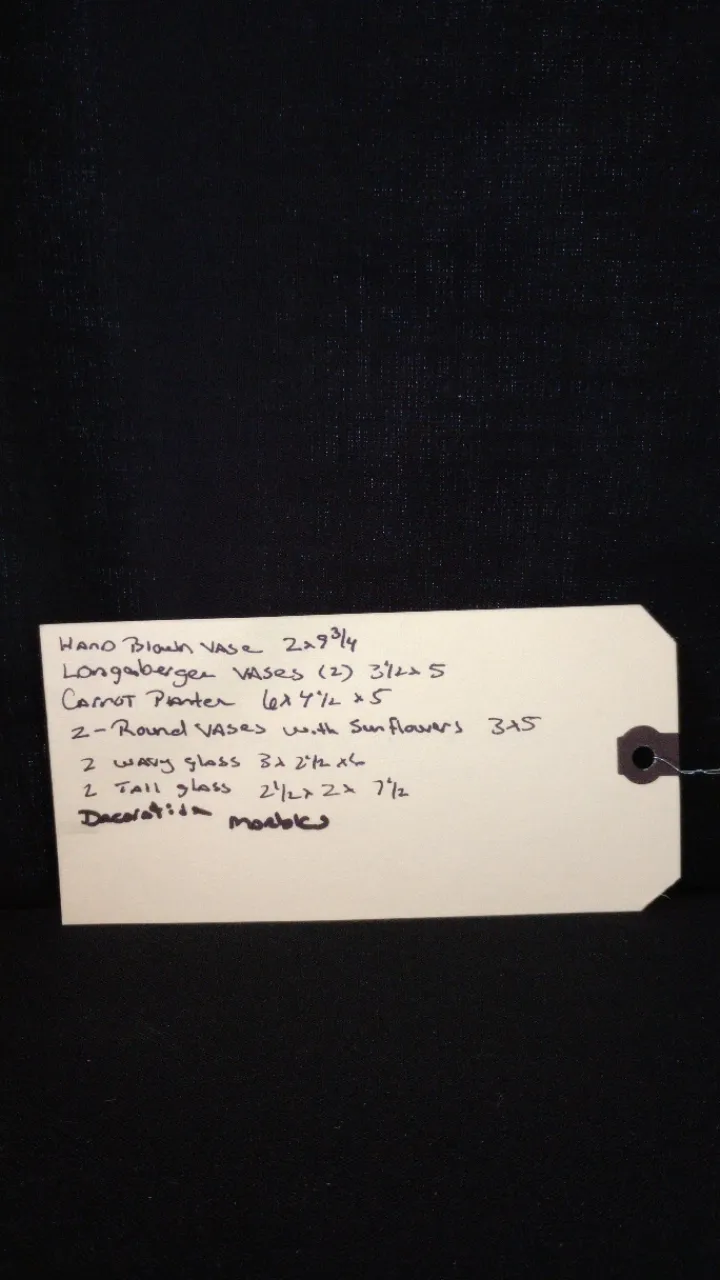 Hand Blown Vase 2x9 3/4
Longaberger Vases (2) 3 1/2 x 5
Carrot Planter 6x 4 1/2 x 5
2-Round Vases with Sunflowers 3x5
2 wavy glass 3x 2 1/2 x6
2 Tall glass 2 1/2 x 2x 7 1/2
Decorative marbles